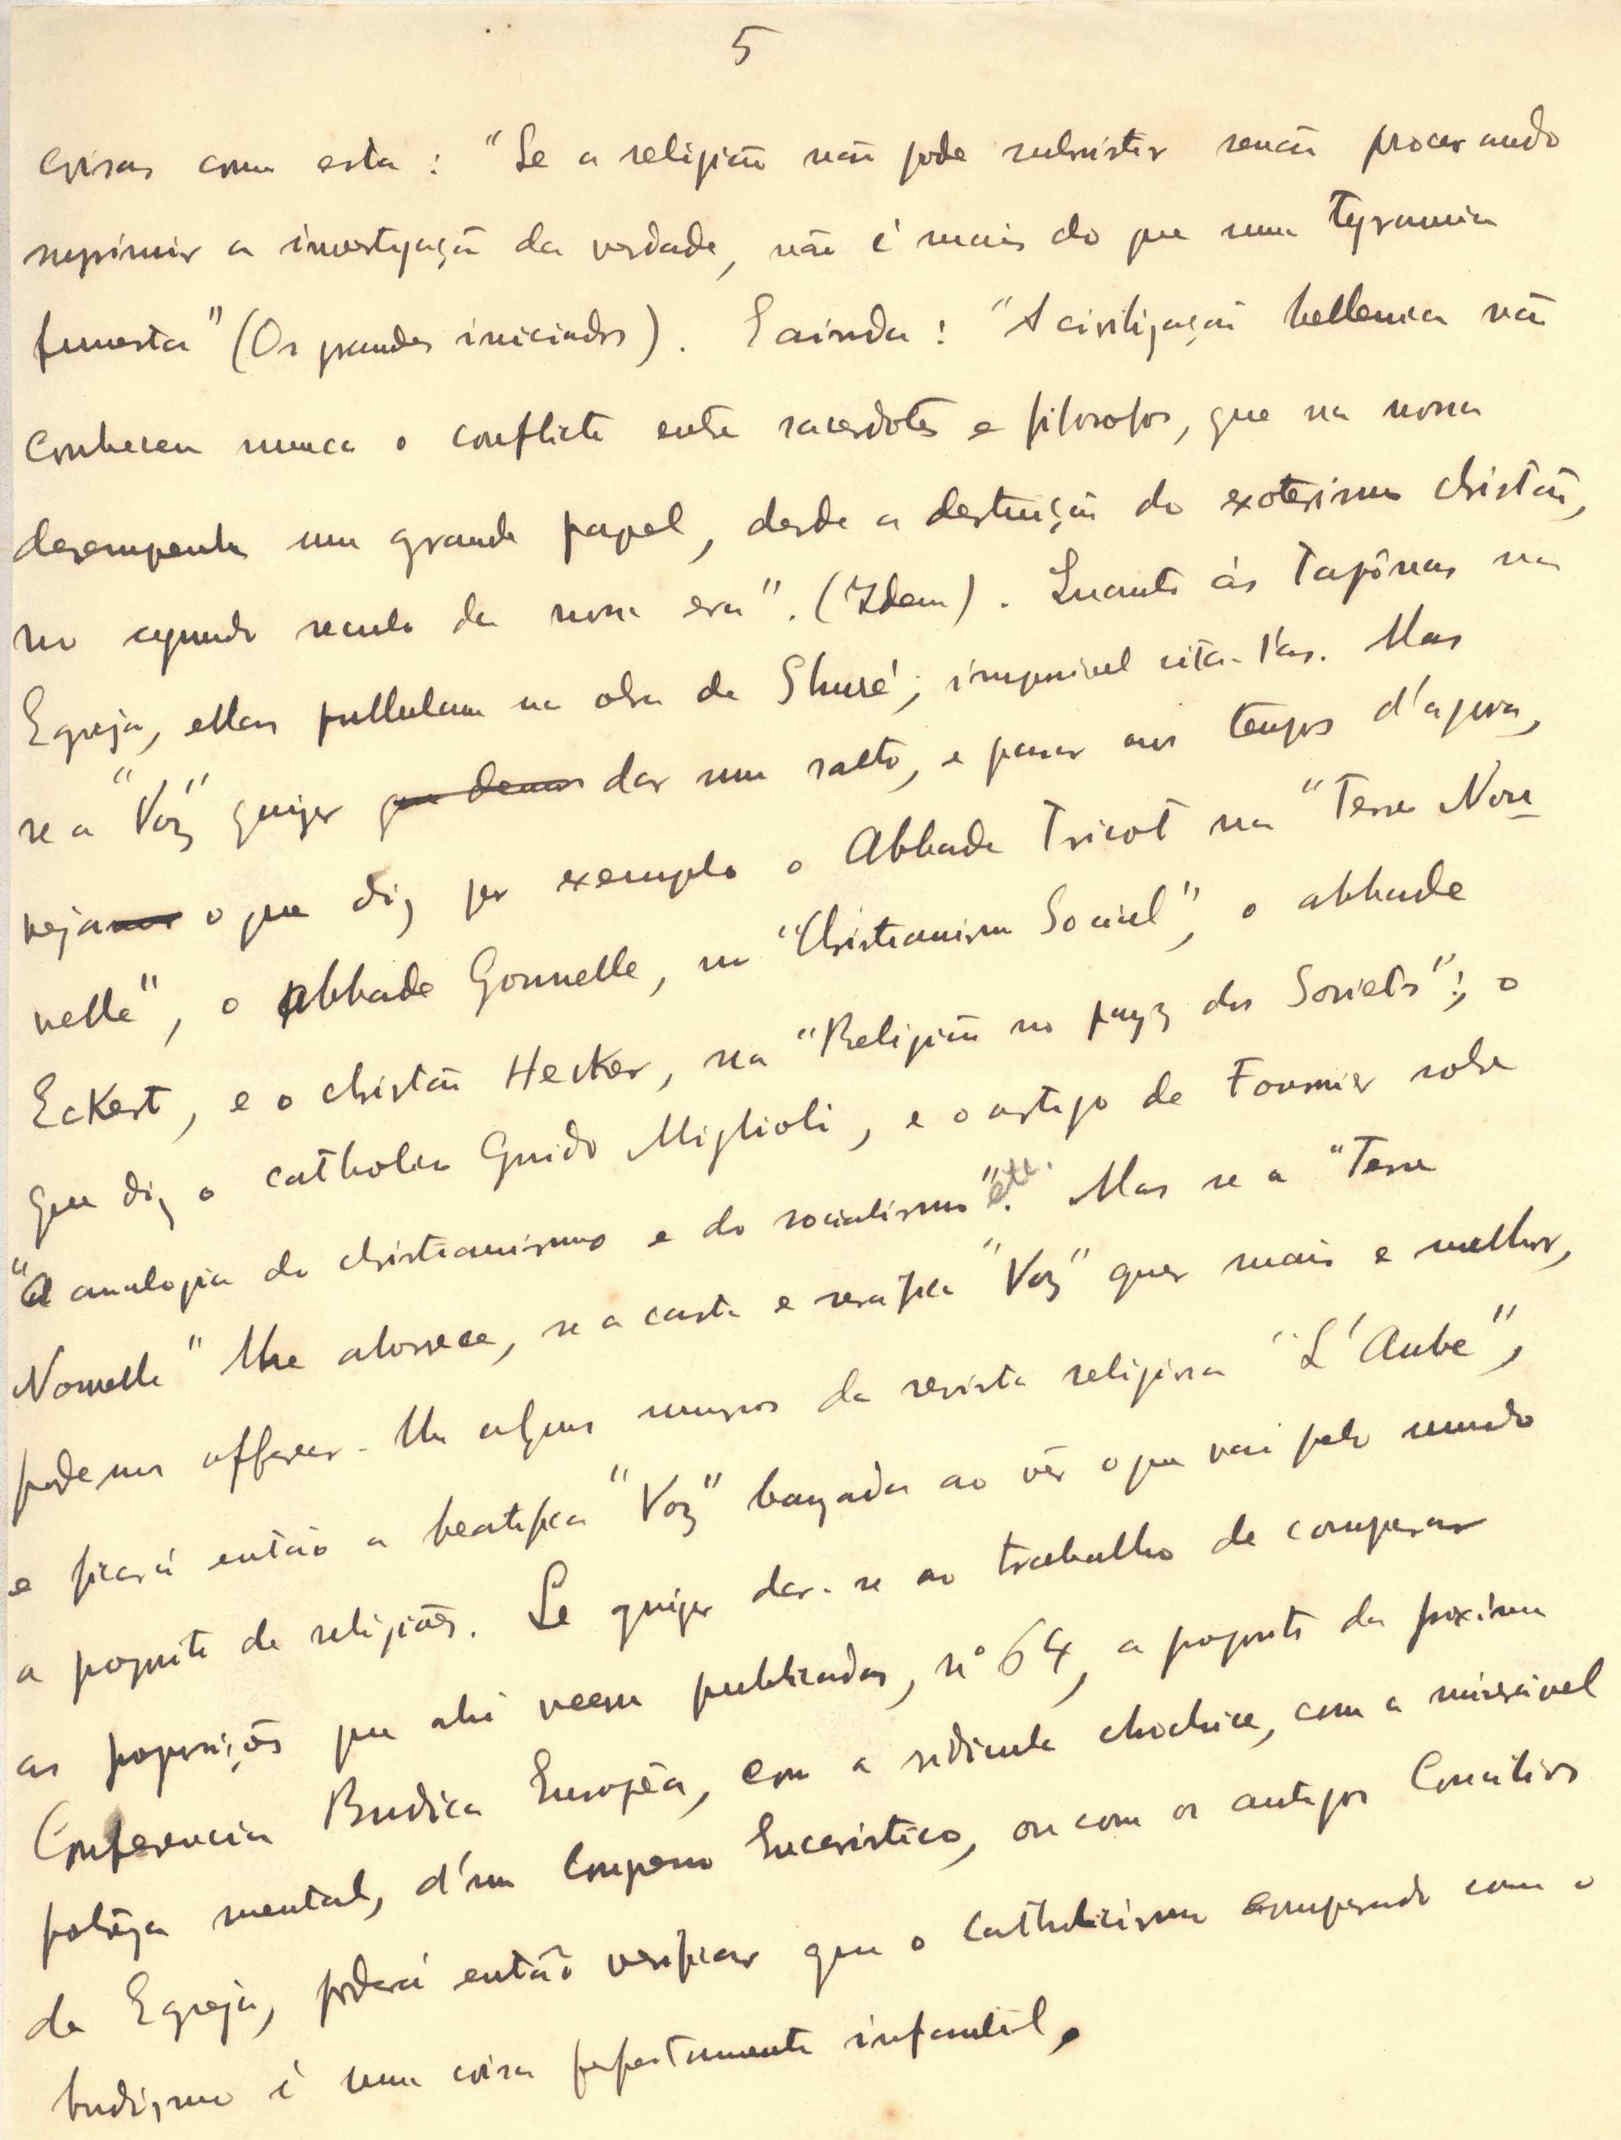 5
coisas como esta: "Se a religião não pode subsistir senão procurando
suprimir a investigação da verdade, não é mais do que uma tyrannia
funesta" (Os grandes iniciados). E ainda: "A civilização hellenica não
conheceu nunca o conflicto entre sacerdotes e filosofos, que na nossa
desempenha um grande papel, desde a destruição do exoterismo christão,
no segundo seculo da nossa era". (Idem). Quanto ás tapônas na
Egreja, ellas pullulam na obra de Shuré; impossivel citá-l'as. Mas
se a "Voz" quizer que demos dar um salto, e passar aos tempos d'agora,
vejamos o que diz por exemplo o Abbade Tricot na "Terre Nou
velle", o Abbade Gonnelle, no "Christianismo Social", o abbade
Eckert, e o christão Hecker, na "Religião no payz dos Soviets"; o
que diz o catholico Guido Miglioli, e o artigo de Fournier sobre
"A analogia do christianismo e do socialismo" etc. Mas se a "Terre
Nouvelle" lhe aborrece, se a casta e serafica "Voz" quer mais e melhor,
podemos offerecer-lhe alguns numeros da revista religiosa "L'Aube",
e ficará então a beatifica "Voz" banzada ao vêr o que vai pelo mundo
a proposito de religiões. Se quizer dar-se ao trabalho de comparar
as proposições que ahi veem publicadas, nº 64, a proposito da proxima
Conferencia Budica Européa, com a ridicula chochice, com a miseravel
pobrêza mental, d'um Congresso Eucaristico, ou com os antigos Concilios
da Egreja, poderá então verificar que o catholicismo comparado com o
budizmo é uma coisa perfeitamente infantil.